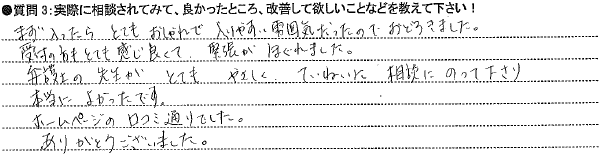 ●質問3:実際に相談されてみて、良かったところ、改善して欲しいことなどを教えて下さい!
まず入ったら とても おしゃれで 入りやすい雰囲気だったので おどろきました。
受付の方も とても 感じ良くて 緊張が ほぐれました。
弁護士の 先生が とても やさしく ていねいに 相談に のって下さり
本当に よかったです。
ホームページの 口コミ通りでした。
ありがとうございました。